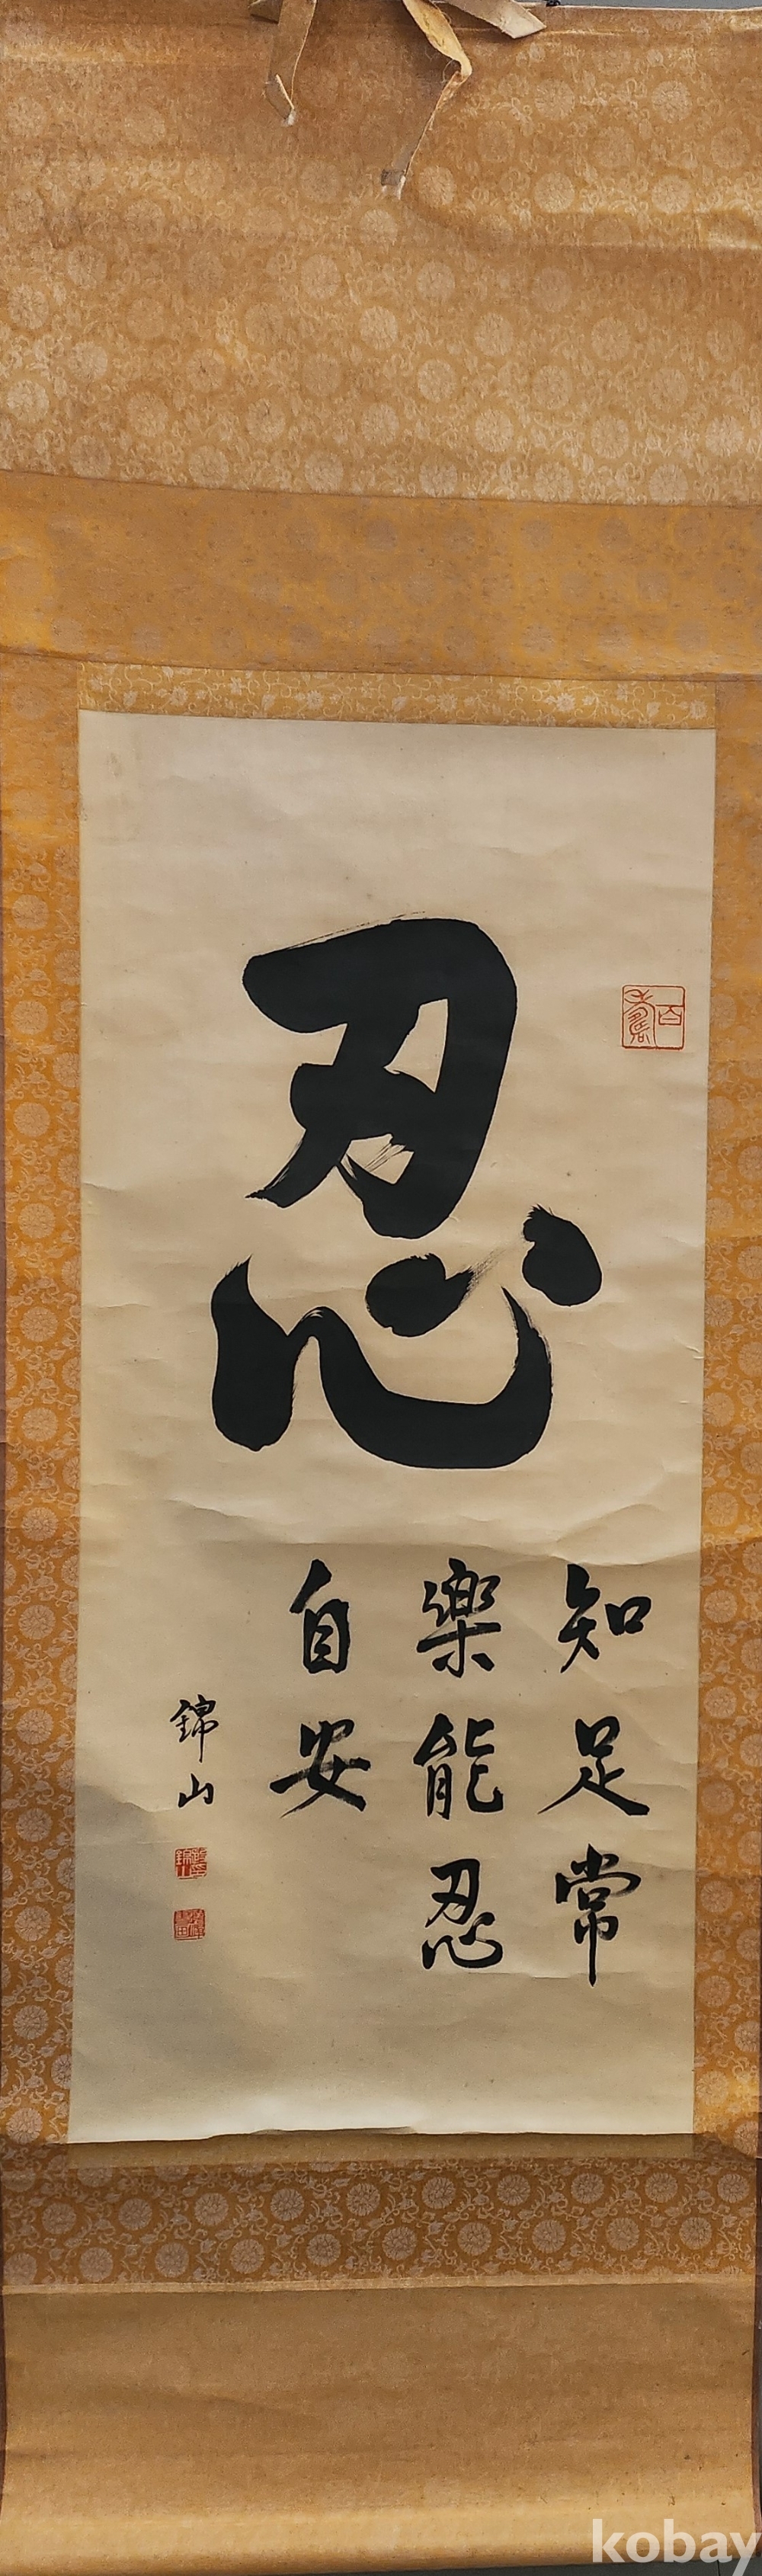 忍
知足常
樂能忍
自安
錦山
kobay